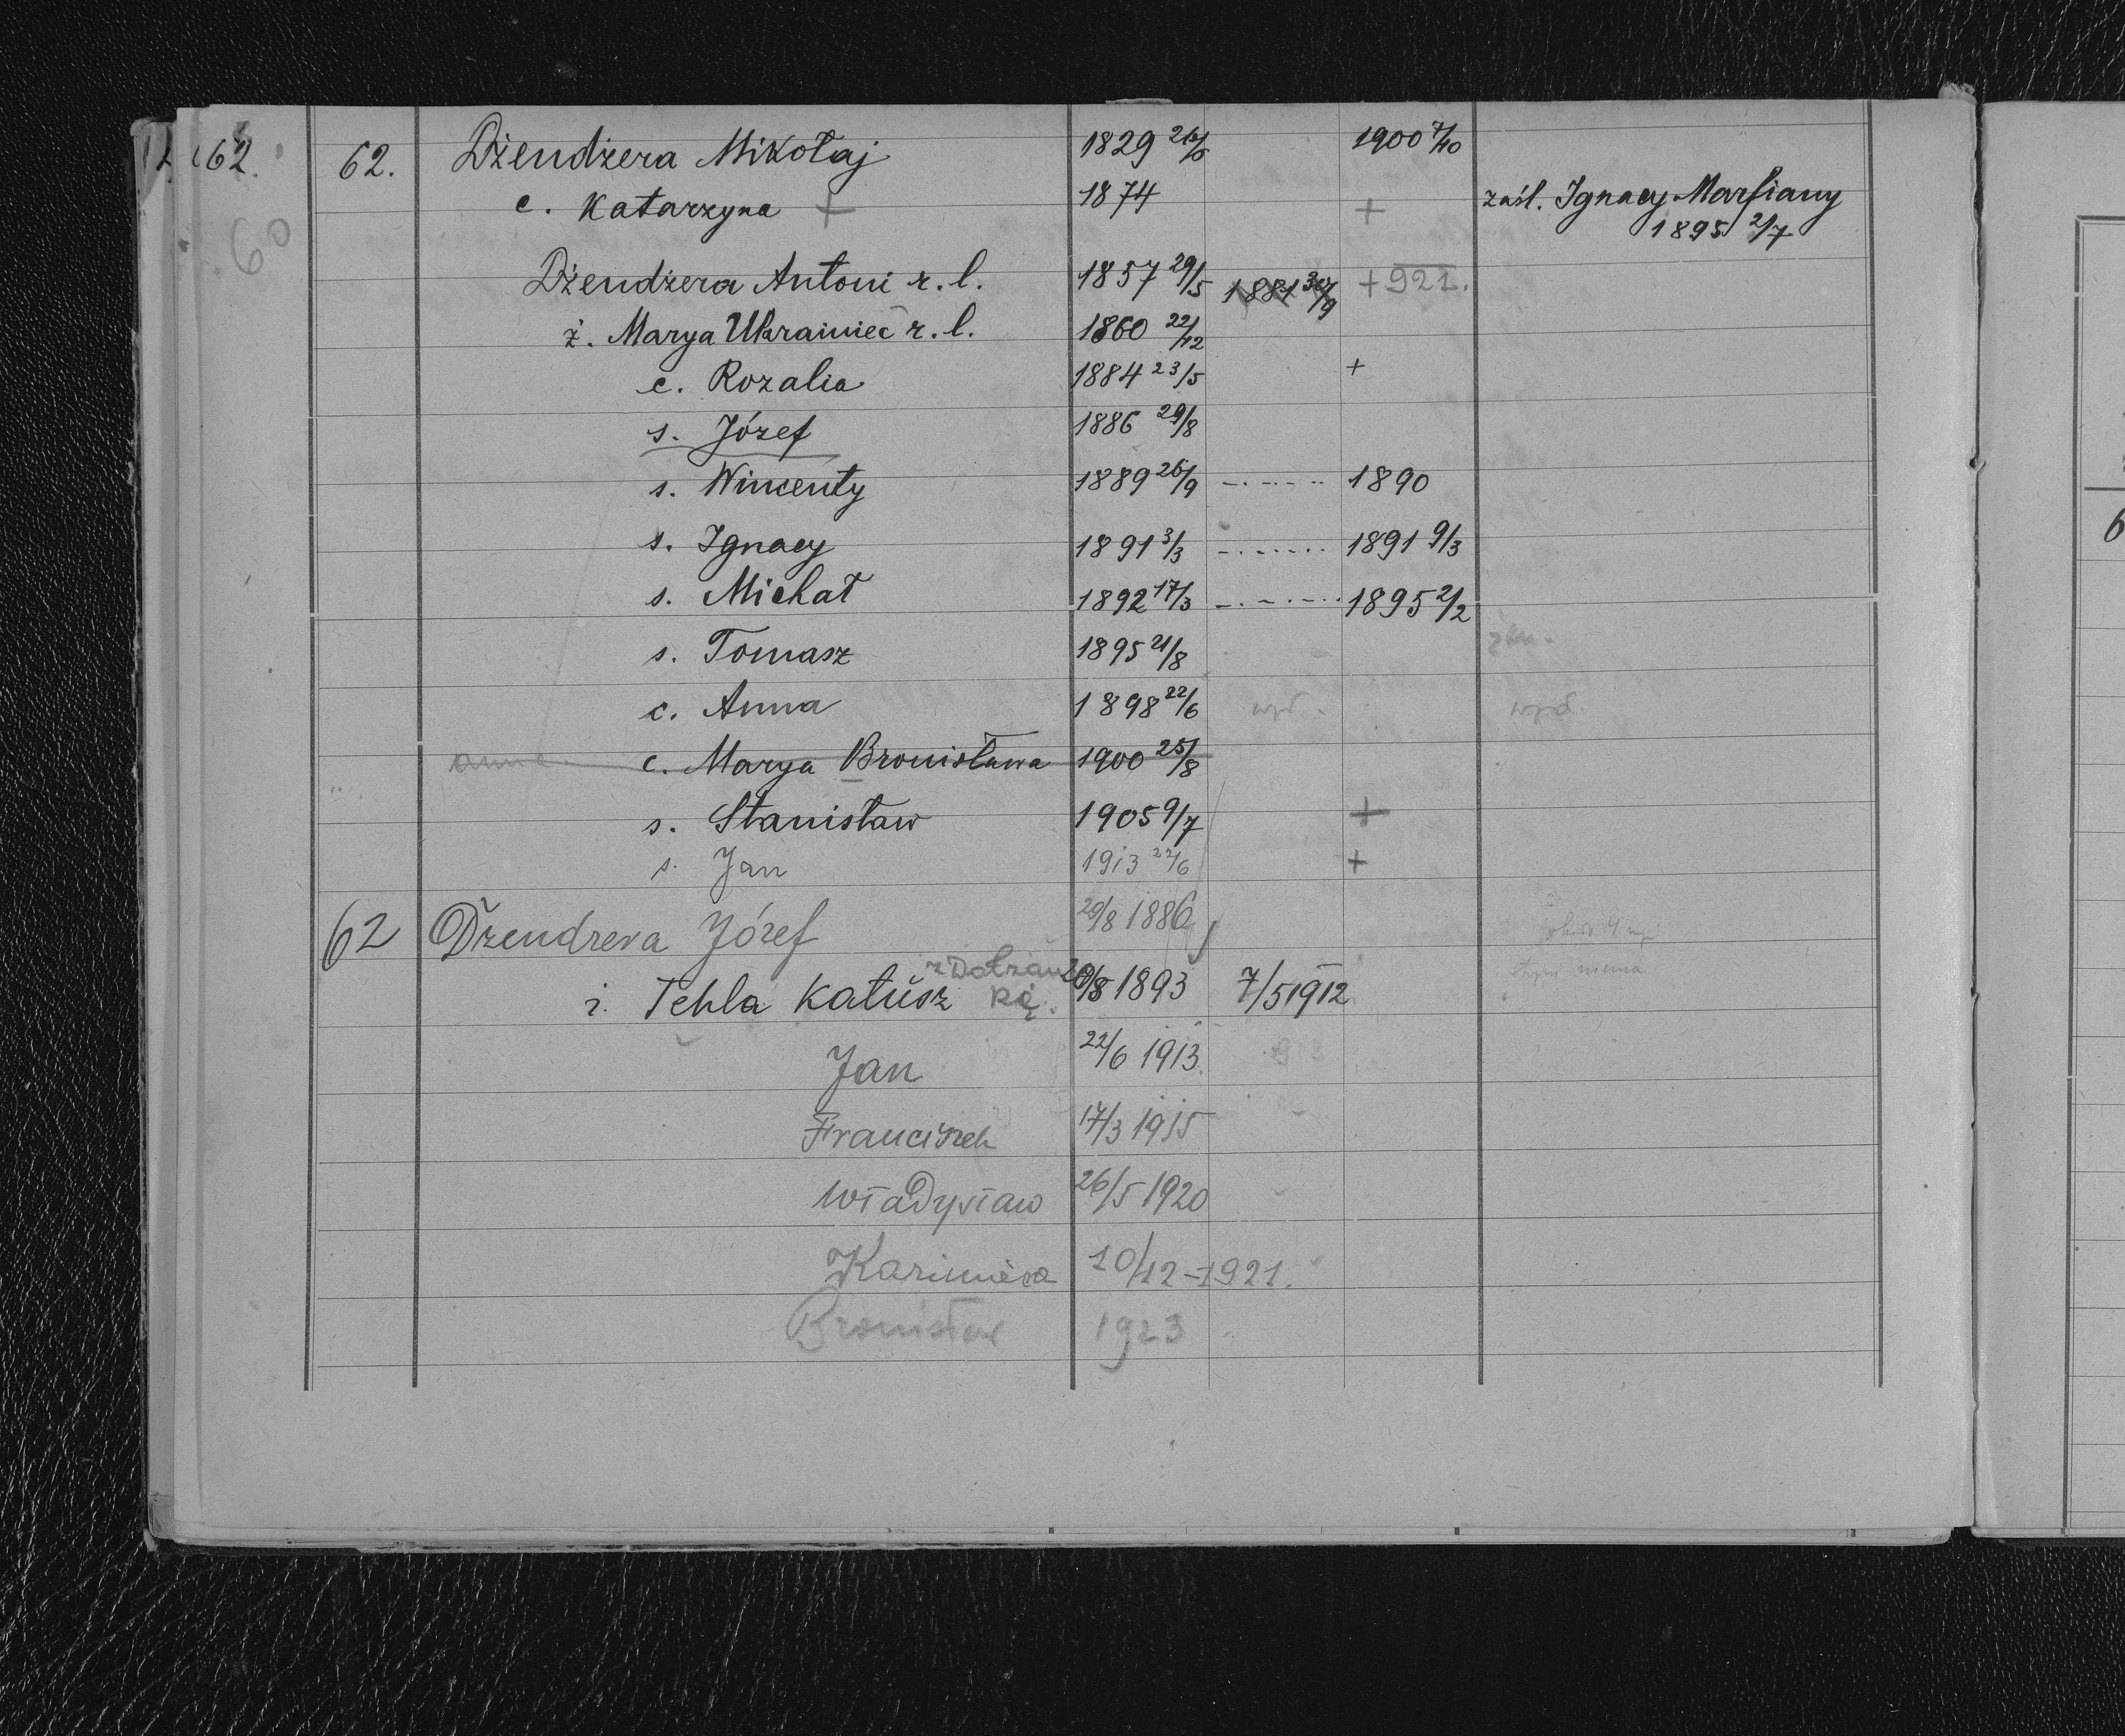 62. 62. Dżendżera Mikołaj 1829 26/5 1900 7/10
60
c. Katarzyna + 1874 + zaśl. Ignacy Marfiany
1895 2/7
Dżendżera Antoni r. l. 1857 29/5 1881 30/9 + 921.
ż. Marya Ukrainiec r. l. 1860 22/12
c. Rozalia 1884 23/5 +
s. Józef 1886 29/8
s. Wincenty 1889 26/9 1890
s. Ignacy 1891 3/3 1891 9/3
s. Michał 1892 17/3 1895 2/2
s. Tomasz 1895 21/8
c. Anna 1898 22/6
c. Marya Bronisława 1900 25/8
s. Stanisław 1905 9/7 +
s. Jan 1913 22/6 +
62 Dżendzera Józef 29/8 1886
ż. Tekla Katusz 20/8 1893 7/5 1912
Jan 22/6 1913
Franciszek 17/3 1915
Władysław 26/5 1920
Kazimiera 10/12 - 1921.
Bronisław 1923
6